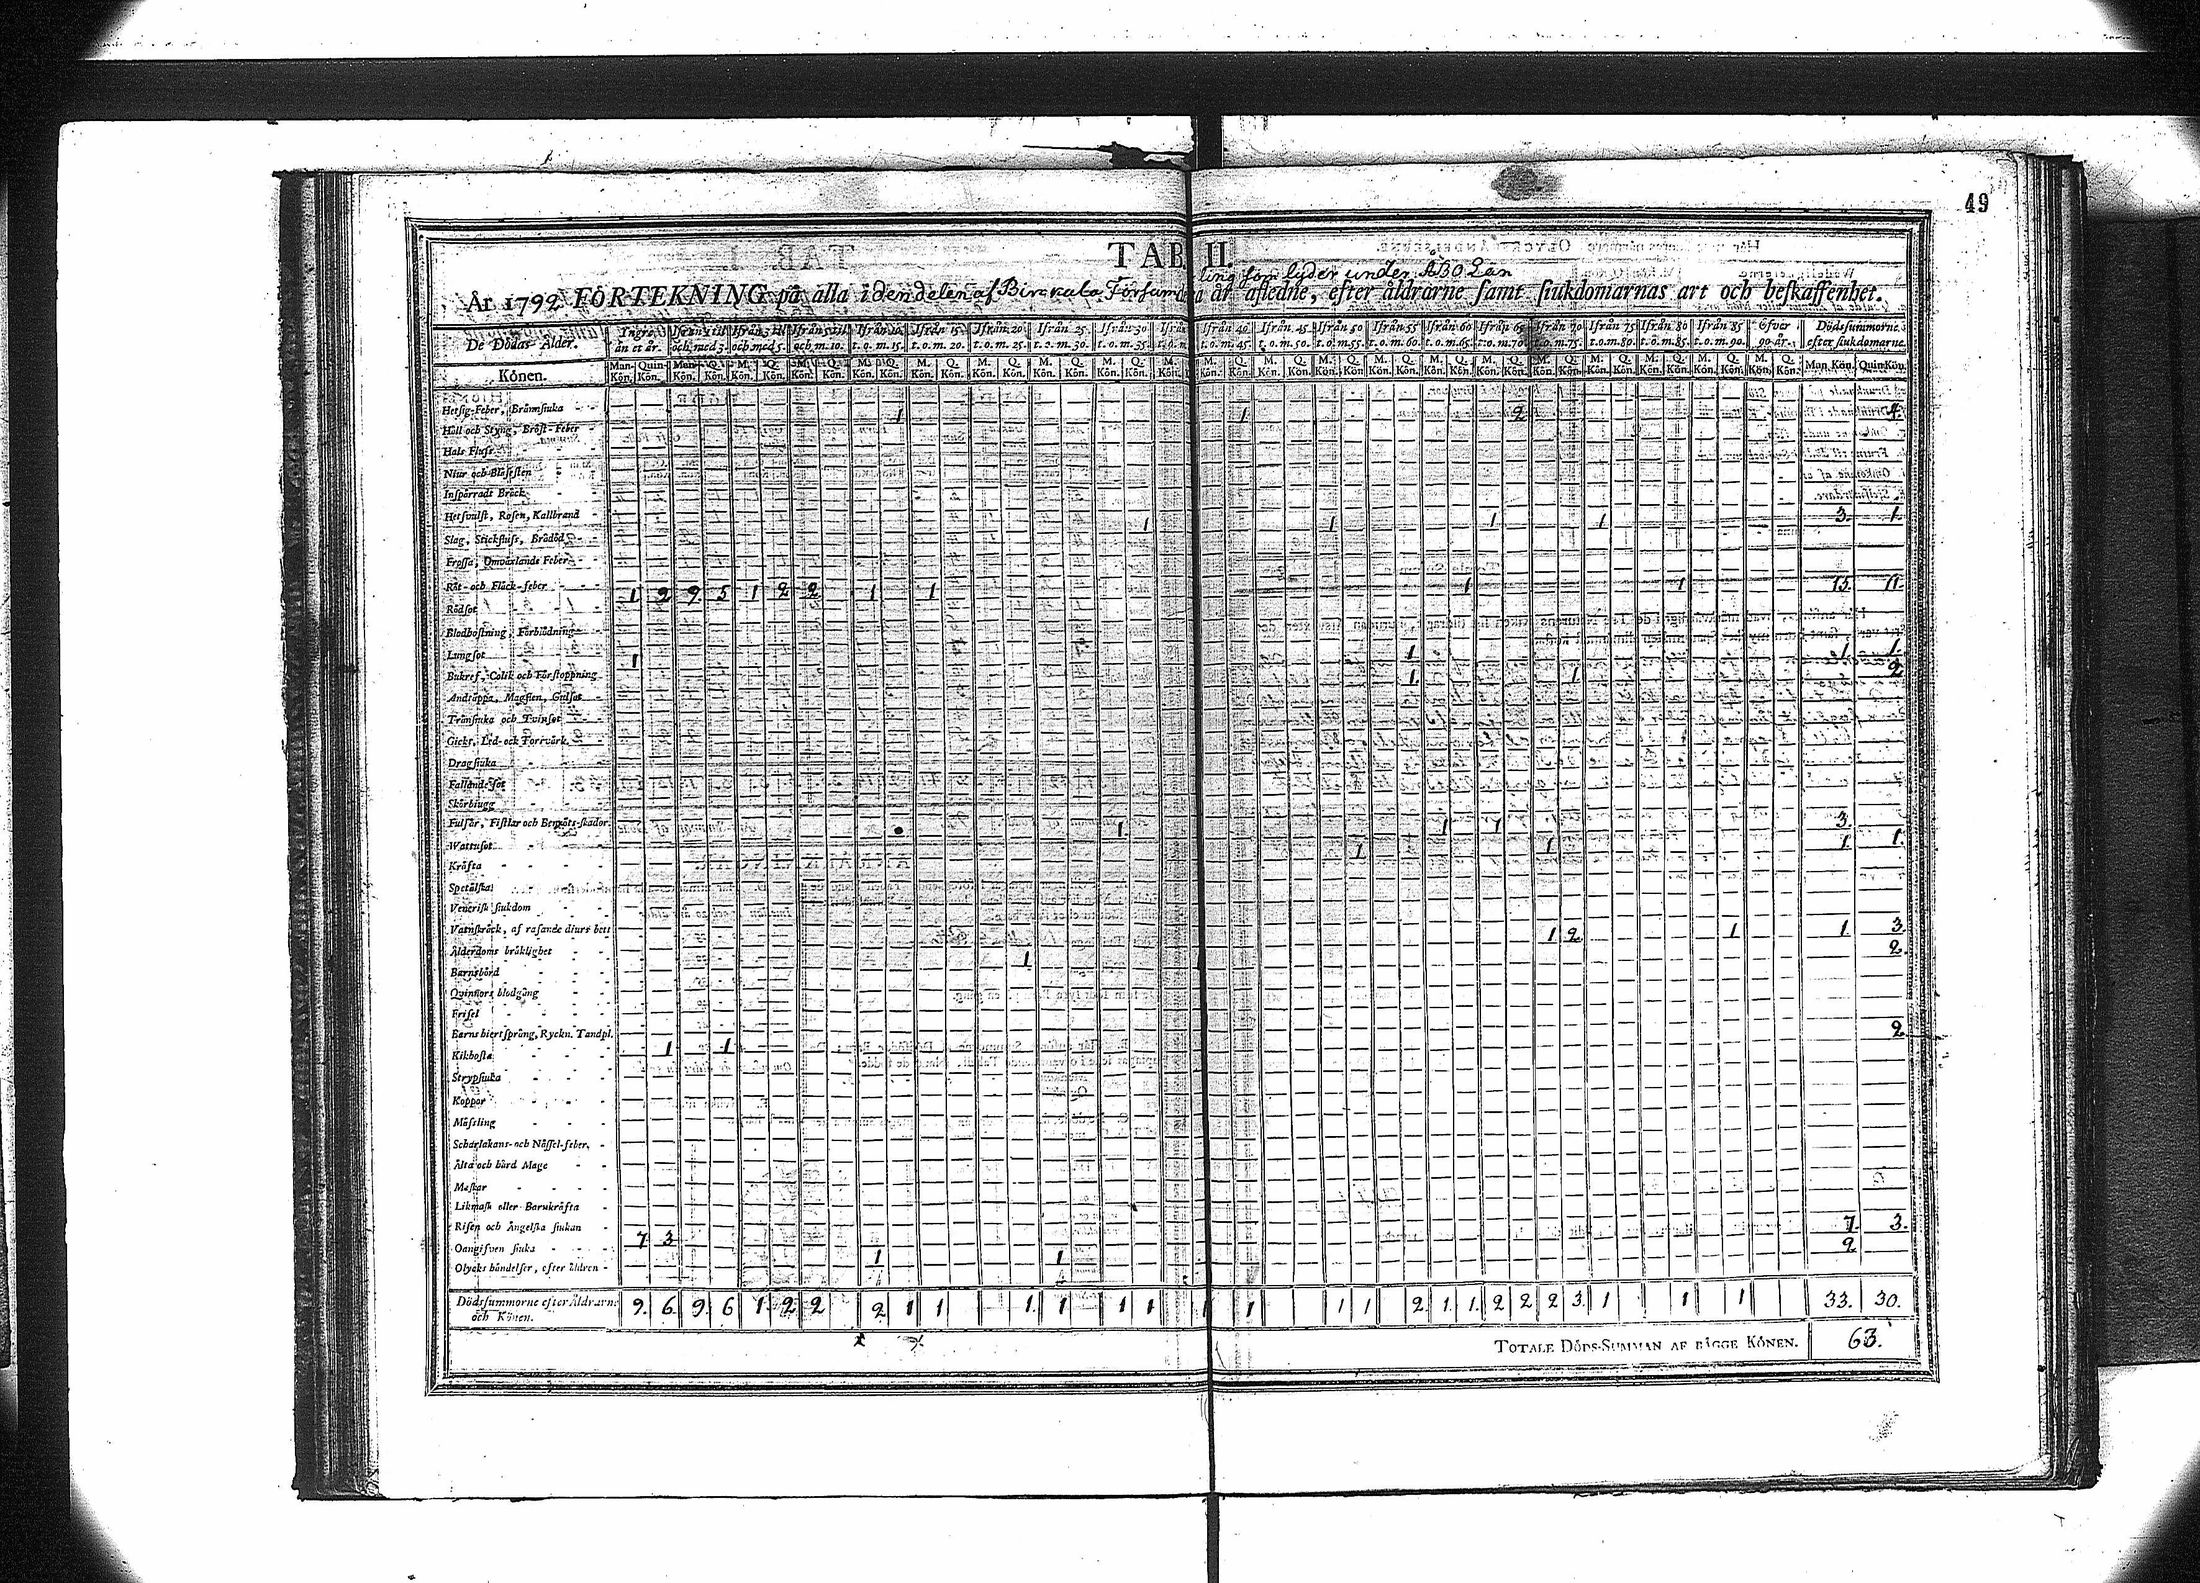 49
TAB. II.
År 1792 FÖRTEKNING på alla i den delen af Birckala Församling som lyder under ÅBO Län detta år afledne, efter åldrarne samt siukdomarnas art och beskaffenhet.
De Dödas Ålder. Yngre än et år. Ifrån 1 til och med 3. Ifrån 3 til och med 5. Ifrån 5 til och m. 10. Ifrån 10 t. o. m. 15. Ifrån 15 t. o. m. 20. Ifrån 20 t. o. m. 25. Ifrån 25 t. o. m. 30. Ifrån 30 t. o. m. 35. Ifrån 40 t. o. m. 45. Ifrån 45 t. o. m. 50. Ifrån 50 t. o. m. 55. Ifrån 55 t. o. m. 60. Ifrån 60 t. o. m. 65. Ifrån 65 t. o. m. 70. Ifrån 70 t. o. m. 75. Ifrån 75 t. o. m. 80. Ifrån 80 t. o. m. 85. Ifrån 85 t. o. m. 90. Öfver 90 år. Dödssummorne efter siukdomarne.
Könen. Man-Kön. Quin-Kön. Man-Kön. Q. Kön. M. Kön. Q. Kön. M. Kön. Q. Kön. Man Kön. Quin Kön.
Hetsig-Feber, Brännsiuka 1 1 2 4.
Håll och Styng, Bröst-Feber
Hals Fluss
Niur och Blåsesten
Inspärradt Bräck
Hetsvulst, Rosen, Kallbrand
Slag, Stickfluss, Brådöd 1 1 1 1 3. 1.
Frossa, Omväxlande Feber
Röt- och Fläck-feber
Rödsot 1 2 9 5 1 2 2 1 1 1 1 15. 11.
Blodhostning, Förblödning
Lungsot 1 1 1. 1.
Bukref, Colik och Förstoppning 1 1 2
Andtäppa, Magsten, Gulsot
Trånsiuka och Tvinsot
Gickt, Led- och Torrvärk
Dragsiuka
Fallandesot
Skörbiugg
Fulsår, Fistlar och Benröts-skador
Wattusot 1 1 1 3.
Kräfta 1 1 1. 1.
Spetälska
Venerisk siukdom
Vatnskräck, af rasande diurs bett
Ålderdoms bräklighet 1 2 1 1. 3.
Barnsbörd 1 2.
Qvinnors blodgång
Frisel
Barns hiertsprång, Ryckn. Tandpl.
Kikhosta 1 1 2
Strypsiuka
Koppor
Mässling
Scharlakans- och Nässel-feber.
Älta och hård Mage
Maskar
Likmask eller Barnkräfta
Risen och Ängelska siukan
Oangifven siuka 7 3 7. 3.
Olycks händelser, efter åldren 1 1 2
Dödssummorne efter Åldrarne och Könen. 9. 6. 9. 6 1. 2 2 2 1 1 1. 1 1 1 1 1 1 1 2. 1. 1. 2 2 2 3. 1 1 1 33. 30.
TOTALE DÖDS-SUMMAN AF BÄGGE KÖNEN. 63.